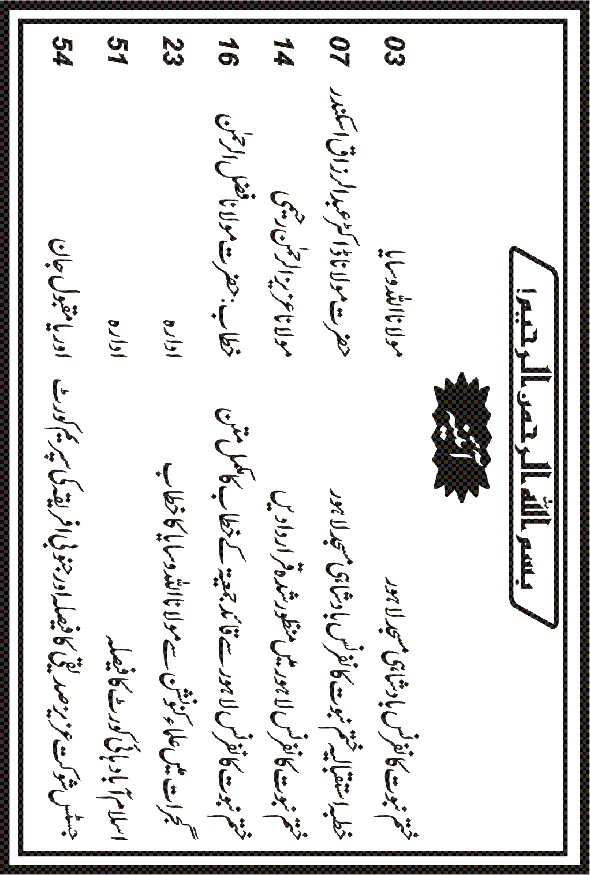 بسم اللہ الرحمن الرحیم!
آئینہ
ختم نبوت کانفرنس بادشاہی مسجد لاہور مولانا اللہ وسایا 03
خطبہ استقبالیہ ختم نبوت کانفرنس بادشاہی مسجد لاہور حضرت مولانا ڈاکٹر عبدالرزاق اسکندر 07
ختم نبوت کانفرنس لاہور میں منظور شدہ قراردادیں مولانا عزیز الرحمٰن رحیمی 14
ختم نبوت کانفرنس لاہور سے قائد جمعیۃ کے خطاب کا مکمل متن خطاب: حضرت مولانا فضل الرحمٰن 16
گجرات میں علماء کنونشن سے مولانا اللہ وسایا کا خطاب ادارہ 23
اسلام آباد ہائی کورٹ کا فیصلہ ادارہ 51
جسٹس شوکت عزیز صدیقی کا فیصلہ اور جنوبی افریقہ کی سپریم کورٹ اوریا مقبول جان 54